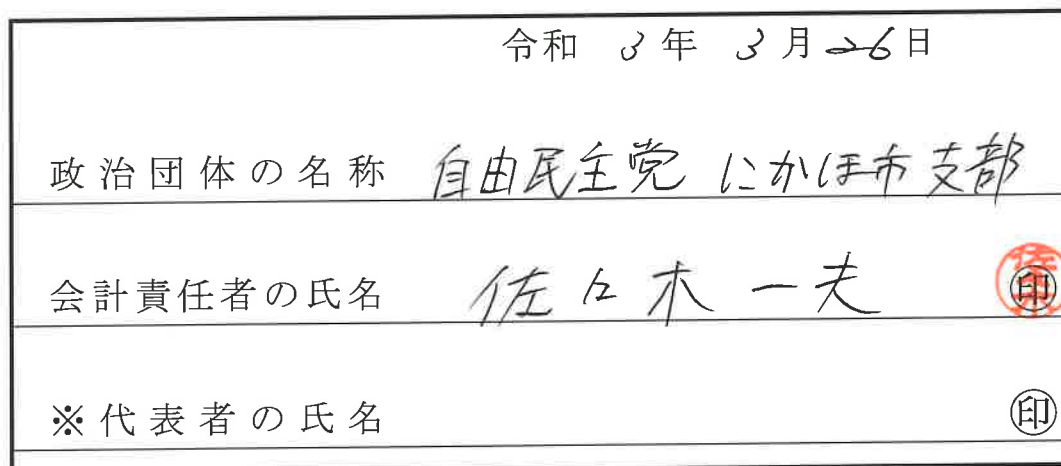 令和 3年 3月26日
政治団体の名称 自由民主党 にかほ市支部
会計責任者の氏名 佐々木一夫 ㊞
※代表者の氏名 ㊞